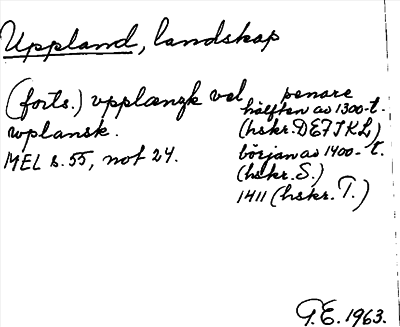 Uppland, landskap
(forts.) vpplænzk vel
wplansk.
MEL s. 55, not 24.
senare
hälften av 1300-t.
(hskr. DEFIKL)
början av 1400-t.
(hskr. S.)
1411 (hskr. T.)
T.E. 1963.